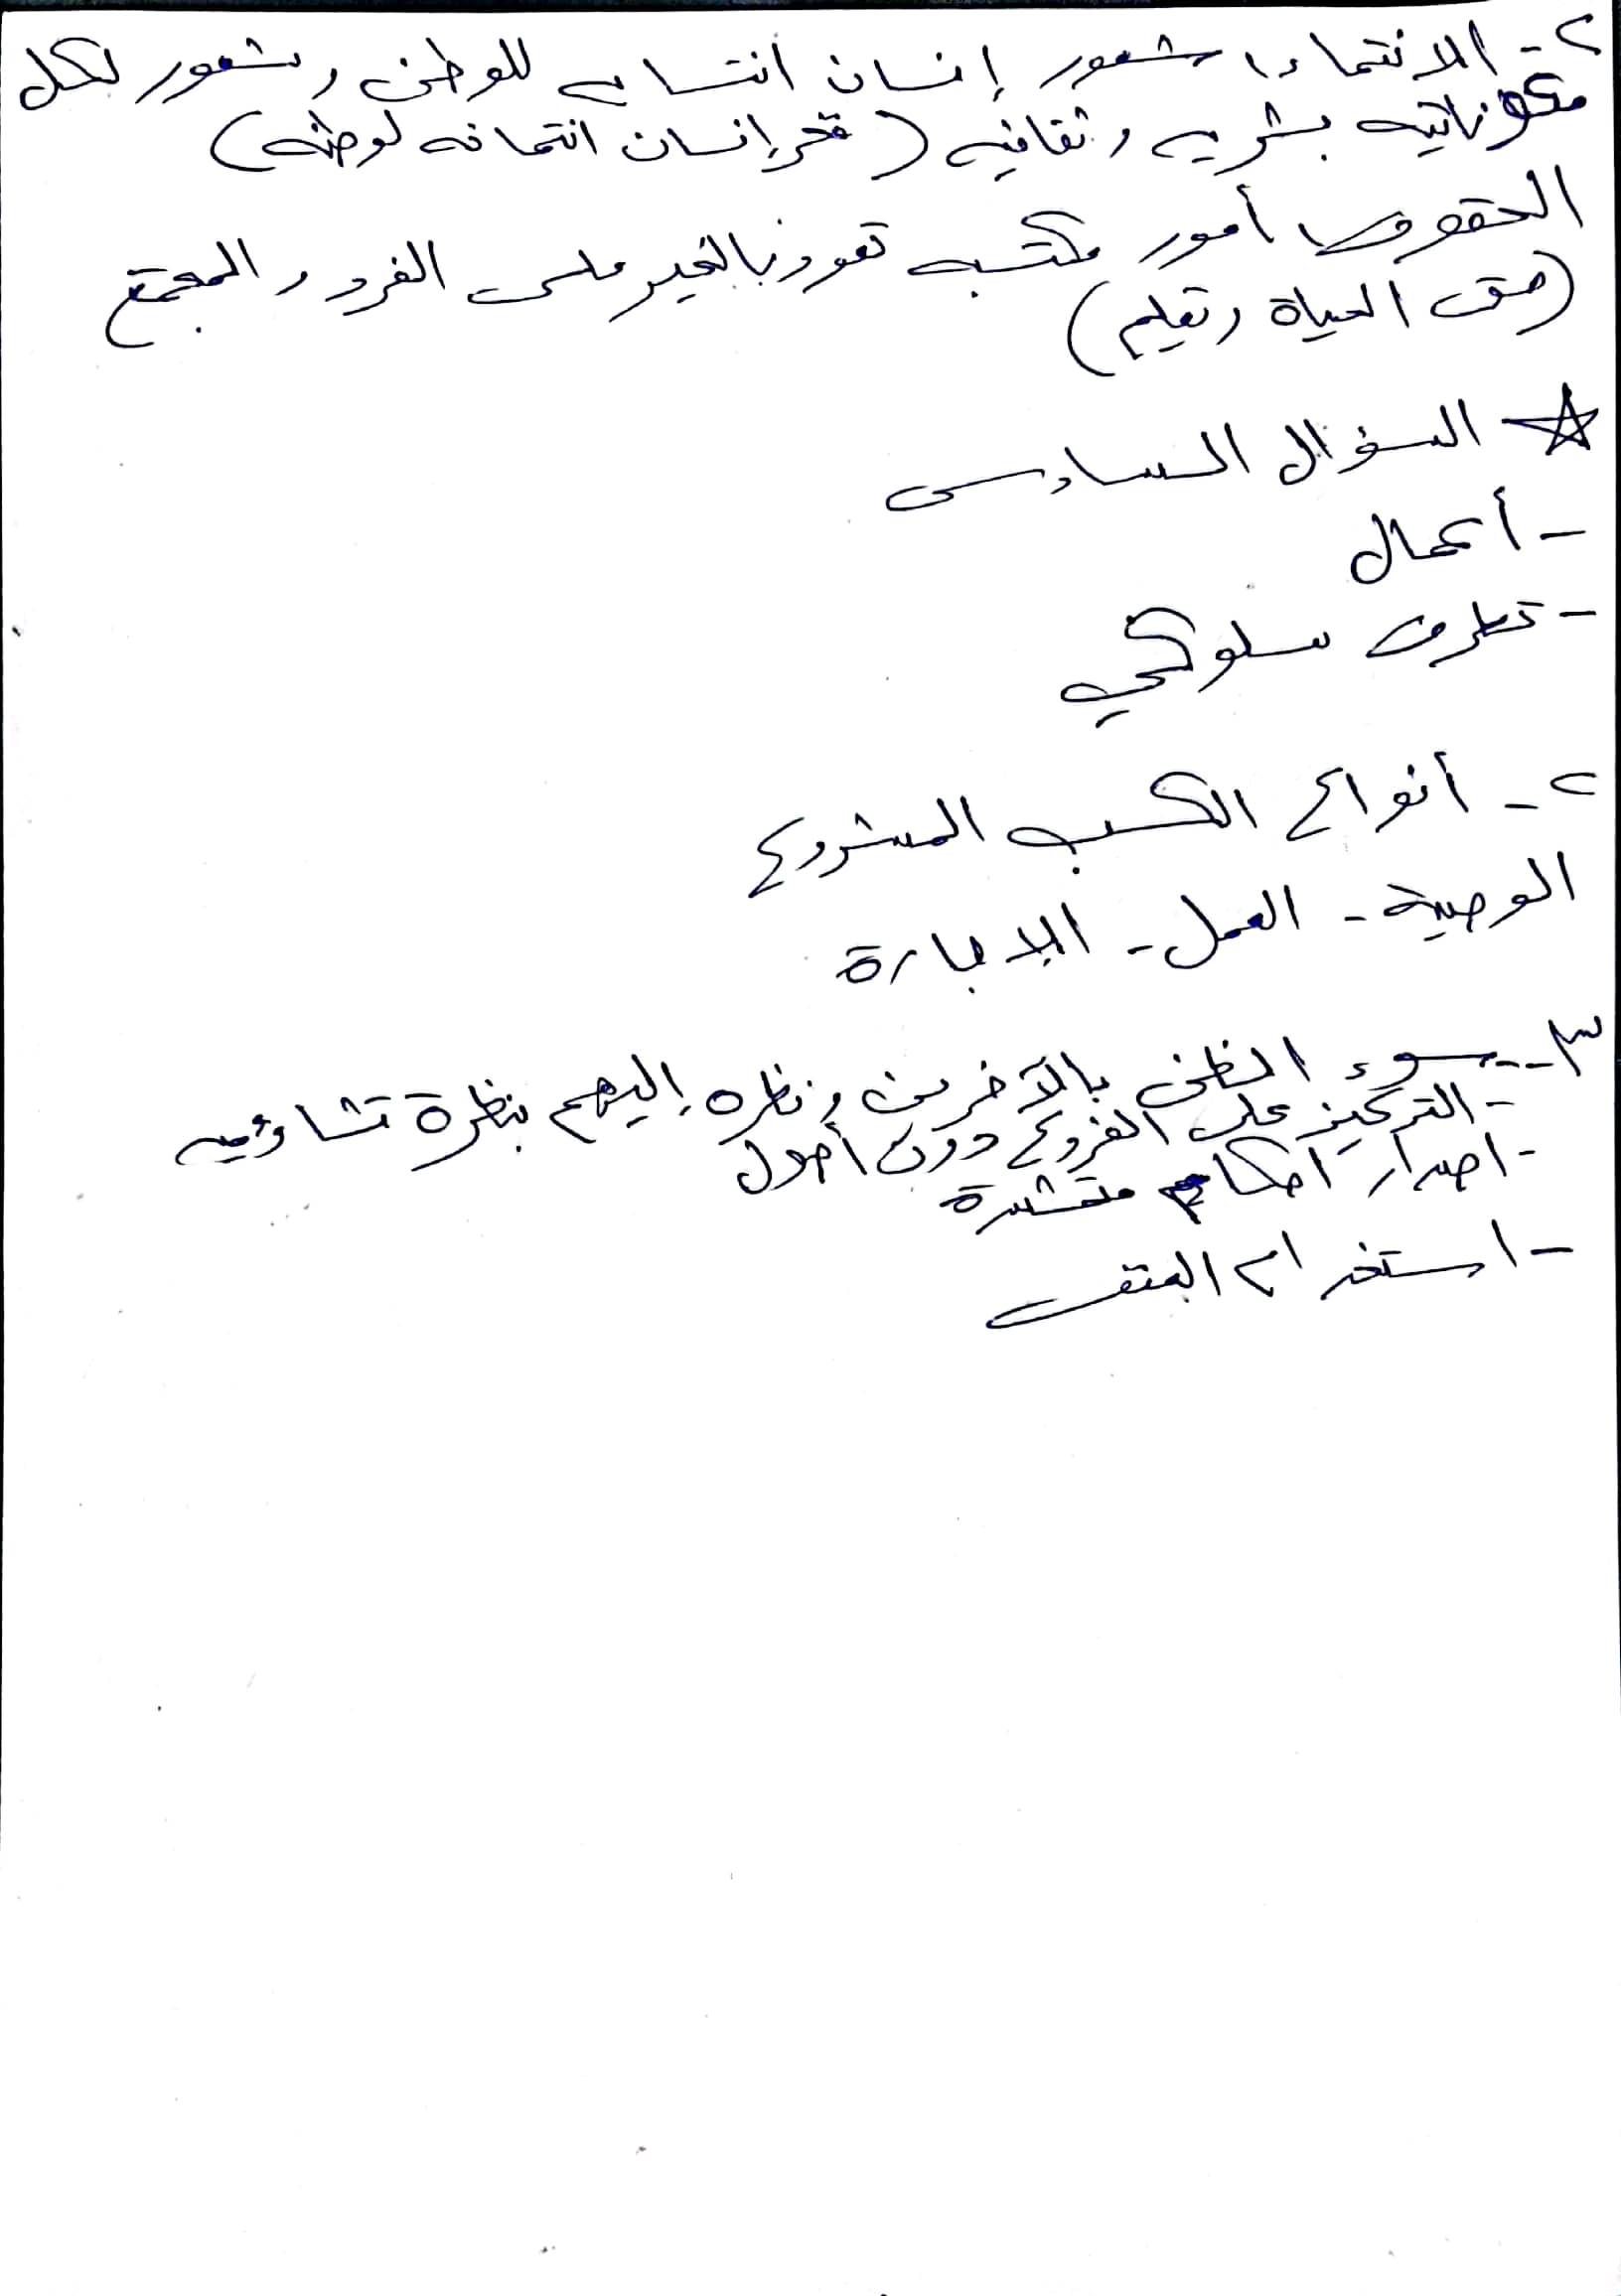 ٢- الانتماء: شعور إنسان انتساب للوطن وشعور لكل
مكوناتيه بشريه وثقافيه (فخر إنسان انتمائه لوطنه)
الحقوق: أمور مكتسبه تعود بالخير على الفرد والمجتمع
(حق الحياة وتعليم)
☆ السؤال السادس
- أعمال
- تطرف سلوكي
٢- أنواع الكسب المشروع
الوصية - العمل - الاجارة
٣-- سوء الظن بالآخرين ونظره إليهم بنظرة تشاؤميه
- التركيز على الفروع دون أصول
- اصدار احكام متشددة
- استخدام العنف